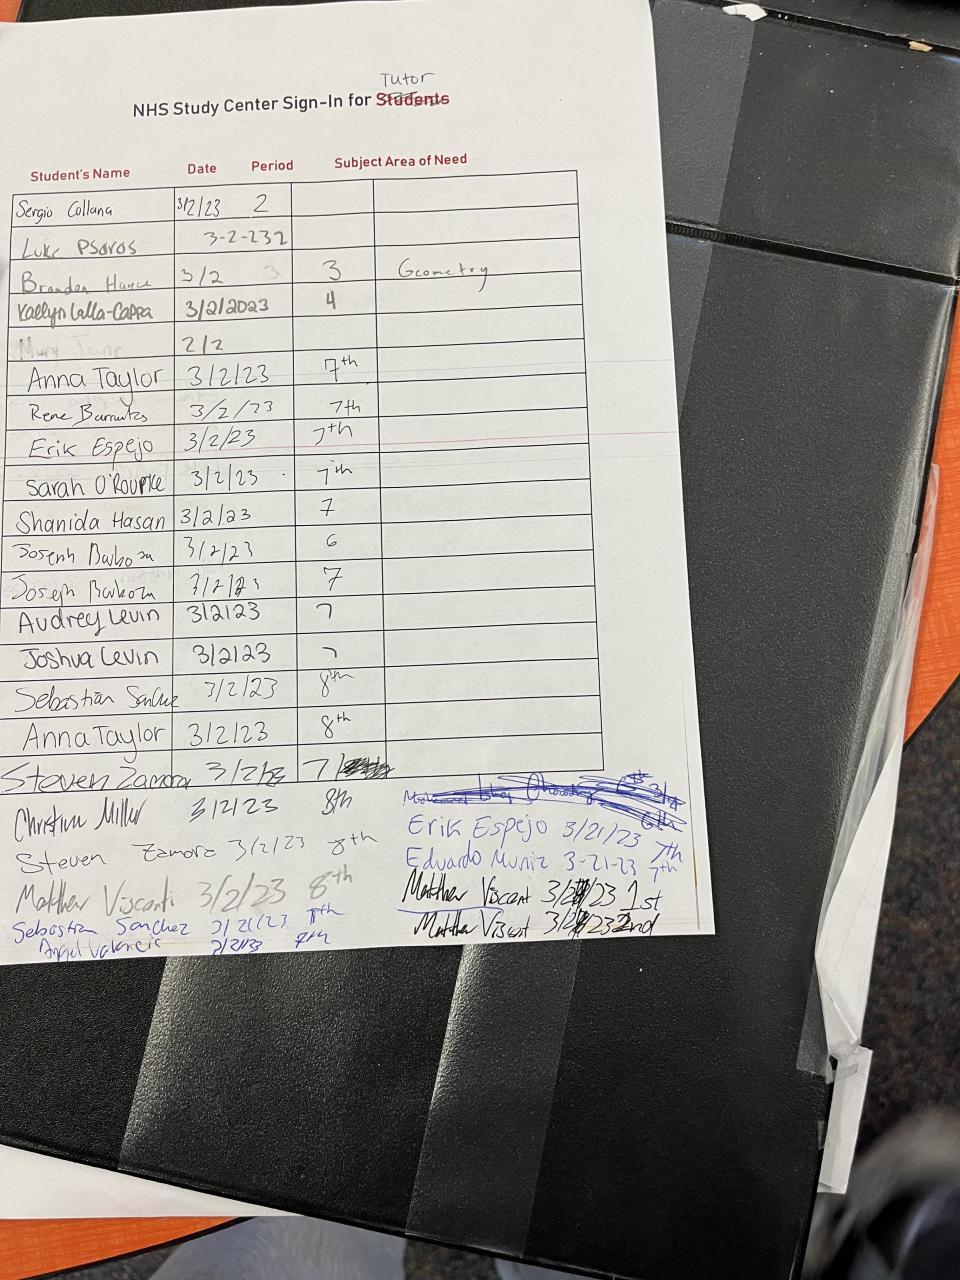 Tutor
NHS Study Center Sign-In for Students
Student's Name Date Period Subject Area of Need
Sergio Collana 3/2/23 2
Luke Psoros 3-2-23 2
Branden 3/2 3 3 Geometry
Kaelyn Lalla-Capra 3/2/2023 4
Mary Jane 2/2
Anna Taylor 3/2/23 7th
Rene 3/2/23 7th
Erik Espejo 3/2/23 7th
Sarah O'Rourke 3/2/23 7th
Shanida Hasan 3/2/23 7
Joseph 3/2/23 6
Joseph 3/2/23 7
Audrey Levin 3/2/23 7
Joshua Levin 3/2/23 7
Sebastian Sanchez 3/2/23 8th
Anna Taylor 3/2/23 8th
Steven Zamora 3/2/23 7
Christian Miller 3/2/23 8th
Steven Zamora 3/2/23 8th
Matthew Visconti 3/2/23 8th
Sebastian Sanchez 3/21/23 7th
Angel Valencia 3/21/23 7th
6th
Erik Espejo 3/21/23 7th
Eduardo Muniz 3-21-23 7th
Matthew Viscont 3/2 /23 1st
Matthew 3/2 /23 2nd